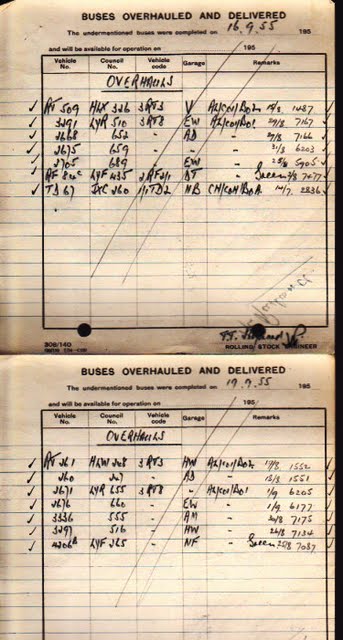 BUSES OVERHAULED AND DELIVERED
The undermentioned buses were completed on 16.9.55 195
and will be available for operation on 195
Vehicle No. Council No. Vehicle code Garage Remarks
OVERHAULS
RT 509 HLX 326 3RT3 V 1487
3291 LYR 510 3RT8 EW 29/8 7167
2668 652 - AD - 7166
2675 659 - - - 31/8 6203
2705 689 - EW - 5905
LYF 435 DT - Green 7477
TD 67 JXC 260 1/1TD2 NB 14/7. 2836
308/140
ROLLING STOCK ENGINEER
BUSES OVERHAULED AND DELIVERED
The undermentioned buses were completed on 19.9.55 195
and will be available for operation on 195
Vehicle No. Council No. Vehicle code Garage Remarks
OVERHAULS
RT 261 HLW 268 3RT3 HW 1552
260 267 - AD - 15/8 1551
2671 LYR 655 3RT8 - 1/9 6205
2676 660 - EW - 1/9 6177
3336 555 - AM - 7175
3297 516 - HW - 26/8 7134
LYF 265 - NF - Green 25/8 7037